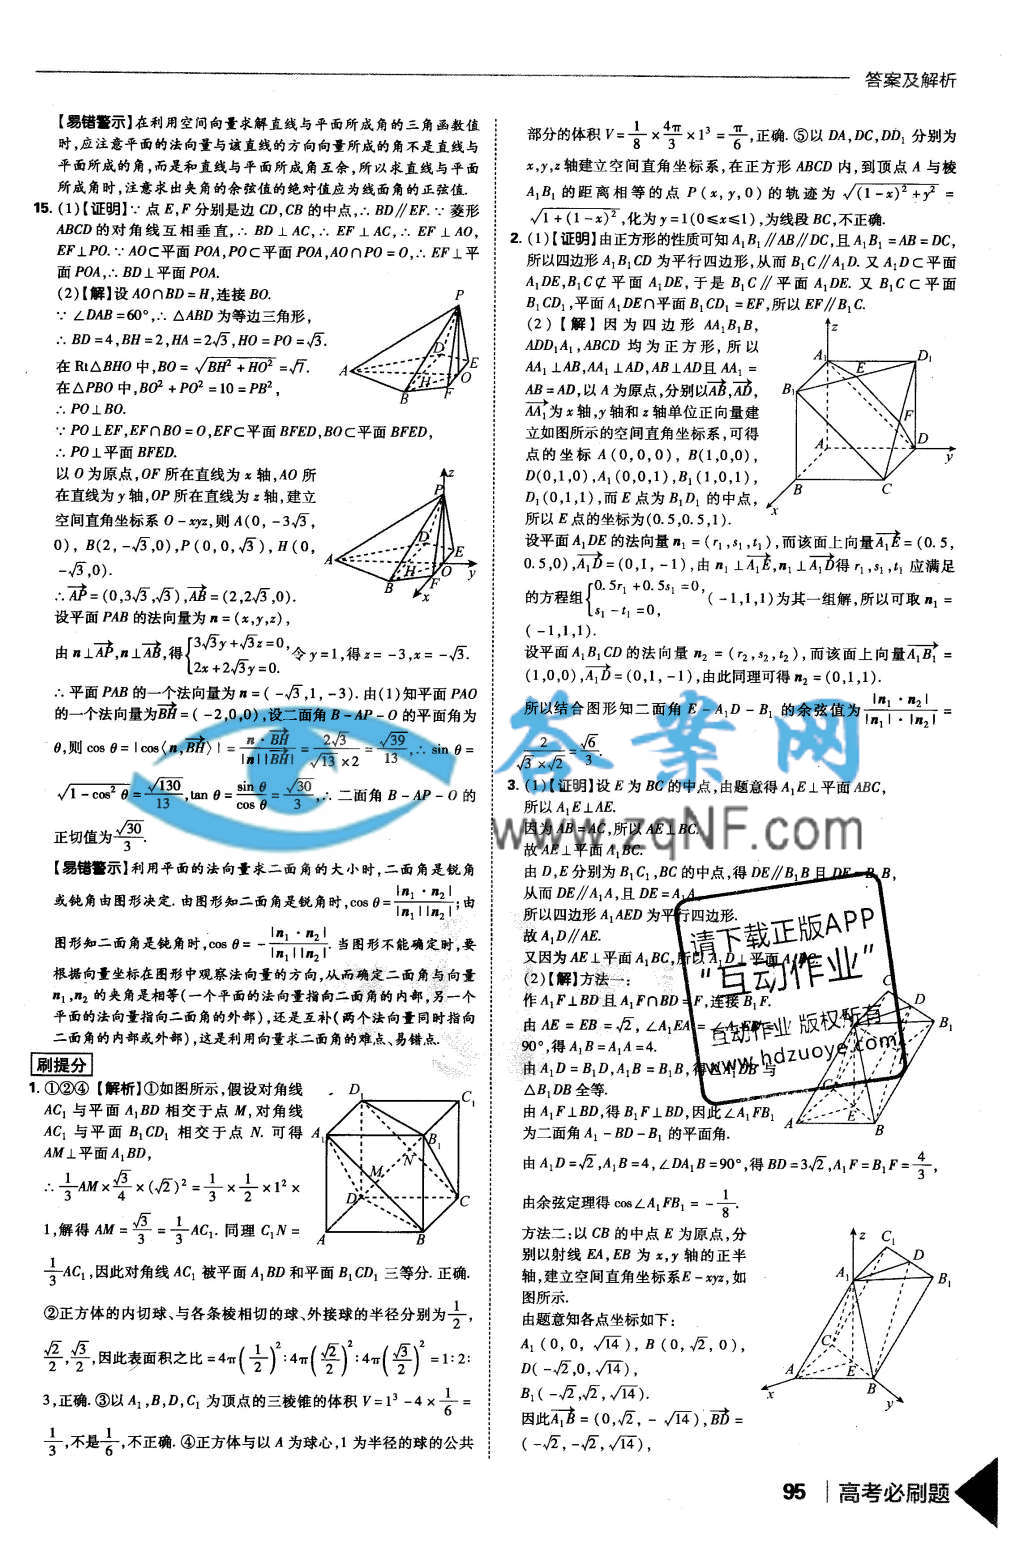 答案及解析
【易错警示】在利用空间向量求解直线与平面所成角的三角函数值
时,应注意平面的法向量与该直线的方向向量所成的角不是直线与
平面所成的角,而是和直线与平面所成角互余,所以求直线与平面
所成角时,注意求出夹角的余弦值的绝对值应为线面角的正弦值.
15. (1)【证明】∵ 点 E,F 分别是边 CD,CB 的中点,∴ BD∥EF. ∵ 菱形
ABCD 的对角线互相垂直,∴ BD⊥AC,∴ EF⊥AC,∴ EF⊥AO,
EF⊥PO. ∵ AO⊂平面 POA,PO⊂平面 POA,AO∩PO=O,∴ EF⊥平
面 POA,∴ BD⊥平面 POA.
(2)【解】设 AO∩BD=H,连接 BO.
∵ ∠DAB=60°,∴ △ABD 为等边三角形,
∴ BD=4,BH=2,HA=2√3,HO=PO=√3.
在 Rt△BHO 中,BO=√(BH²+HO²)=√7.
在△PBO 中,BO²+PO²=10=PB²,
∴ PO⊥BO.
∵ PO⊥EF,EF∩BO=O,EF⊂平面 BFED,BO⊂平面 BFED,
∴ PO⊥平面 BFED.
以 O 为原点,OF 所在直线为 x 轴,AO 所
在直线为 y 轴,OP 所在直线为 z 轴,建立
空间直角坐标系 O-xyz,则 A(0,-3√3,
0),B(2,-√3,0),P(0,0,√3),H(0,
-√3,0).
∴ AP→=(0,3√3,√3),AB→=(2,2√3,0).
设平面 PAB 的法向量为 n=(x,y,z),
由 n⊥AP→,n⊥AB→,得{3√3y+√3z=0, 2x+2√3y=0. 令 y=1,得 z=-3,x=-√3.
∴ 平面 PAB 的一个法向量为 n=(-√3,1,-3). 由(1)知平面 PAO
的一个法向量为BH→=(-2,0,0),设二面角 B-AP-O 的平面角为
θ,则 cos θ=|cos⟨n,BH→⟩|=n·BH→/|n||BH→|=2√3/(√13×2)=√39/13,∴ sin θ=
√(1-cos²θ)=√130/13,tan θ=sin θ/cos θ=√30/3,∴ 二面角 B-AP-O 的
正切值为√30/3.
【易错警示】利用平面的法向量求二面角的大小时,二面角是锐角
或钝角由图形决定. 由图形知二面角是锐角时,cos θ=|n₁·n₂|/|n₁||n₂|;由
图形知二面角是钝角时,cos θ=-|n₁·n₂|/|n₁||n₂|. 当图形不能确定时,要
根据向量坐标在图形中观察法向量的方向,从而确定二面角与向量
n₁,n₂ 的夹角是相等(一个平面的法向量指向二面角的内部,另一个
平面的法向量指向二面角的外部),还是互补(两个法向量同时指向
二面角的内部或外部),这是利用向量求二面角的难点、易错点.
刷提分
1. ①②④ 【解析】①如图所示,假设对角线
AC₁ 与平面 A₁BD 相交于点 M,对角线
AC₁ 与平面 B₁CD₁ 相交于点 N. 可得
AM⊥平面 A₁BD,
∴ 1/3 AM×√3/4×(√2)²=1/3×1/2×1²×
1,解得 AM=√3/3=1/3 AC₁. 同理 C₁N=
1/3 AC₁,因此对角线 AC₁ 被平面 A₁BD 和平面 B₁CD₁ 三等分. 正确.
②正方体的内切球、与各条棱相切的球、外接球的半径分别为1/2,
√2/2,√3/2,因此表面积之比=4π(1/2)²:4π(√2/2)²:4π(√3/2)²=1:2:
3,正确. ③以 A₁,B,D,C₁ 为顶点的三棱锥的体积 V=1³-4×1/6=
1/3,不是1/6,不正确. ④正方体与以 A 为球心,1 为半径的球的公共
部分的体积 V=1/8×4π/3×1³=π/6,正确. ⑤以 DA,DC,DD₁ 分别为
x,y,z 轴建立空间直角坐标系,在正方形 ABCD 内,到顶点 A 与棱
A₁B₁ 的距离相等的点 P(x,y,0)的轨迹为 √((1-x)²+y²)=
√(1+(1-x)²),化为 y=1(0≤x≤1),为线段 BC,不正确.
2. (1)【证明】由正方形的性质可知 A₁B₁∥AB∥DC,且 A₁B₁=AB=DC,
所以四边形 A₁B₁CD 为平行四边形,从而 B₁C∥A₁D. 又 A₁D⊂平面
A₁DE,B₁C⊄平面 A₁DE,于是 B₁C∥平面 A₁DE. 又 B₁C⊂平面
B₁CD₁,平面 A₁DE∩平面 B₁CD₁=EF,所以 EF∥B₁C.
(2)【解】因为四边形 AA₁B₁B,
ADD₁A₁,ABCD 均为正方形,所以
AA₁⊥AB,AA₁⊥AD,AB⊥AD且 AA₁=
AB=AD,以 A 为原点,分别以AB→,AD→,
AA₁→为 x 轴,y 轴和 z 轴单位正向量建
立如图所示的空间直角坐标系,可得
点的坐标 A(0,0,0),B(1,0,0),
D(0,1,0),A₁(0,0,1),B₁(1,0,1),
D₁(0,1,1),而 E 点为 B₁D₁ 的中点,
所以 E 点的坐标为(0.5,0.5,1).
设平面 A₁DE 的法向量 n₁=(r₁,s₁,t₁),而该面上向量A₁E→=(0.5,
0.5,0),A₁D→=(0,1,-1),由 n₁⊥A₁E→,n₁⊥A₁D→得 r₁,s₁,t₁ 应满足
的方程组{0.5r₁+0.5s₁=0, s₁-t₁=0, (-1,1,1)为其一组解,所以可取 n₁=
(-1,1,1).
设平面 A₁B₁CD 的法向量 n₂=(r₂,s₂,t₂),而该面上向量A₁B₁→=
(1,0,0),A₁D→=(0,1,-1),由此同理可得 n₂=(0,1,1).
所以结合图形知二面角 E-A₁D-B₁ 的余弦值为|n₁·n₂|/|n₁|·|n₂|=
2/(√3×√2)=√6/3.
3. (1)【证明】设 E 为 BC 的中点,由题意得 A₁E⊥平面 ABC,
所以 A₁E⊥AE.
因为 AB=AC,所以 AE⊥BC.
故 AE⊥平面 A₁BC.
由 D,E 分别为 B₁C₁,BC 的中点,得 DE∥B₁B 且 DE=B₁B,
从而 DE∥A₁A,且 DE=A₁A,
所以四边形 A₁AED 为平行四边形.
故 A₁D∥AE.
又因为 AE⊥平面 A₁BC,所以 A₁D⊥平面 A₁BC.
(2)【解】方法一:
作 A₁F⊥BD 且 A₁F∩BD=F,连接 B₁F.
由 AE=EB=√2,∠A₁EA=∠A₁EB=
90°,得 A₁B=A₁A=4.
由 A₁D=B₁D,A₁B=B₁B,得△A₁DB 与
△B₁DB 全等.
由 A₁F⊥BD,得 B₁F⊥BD,因此∠A₁FB₁
为二面角 A₁-BD-B₁ 的平面角.
由 A₁D=√2,A₁B=4,∠DA₁B=90°,得 BD=3√2,A₁F=B₁F=4/3,
由余弦定理得 cos∠A₁FB₁=-1/8.
方法二:以 CB 的中点 E 为原点,分
别以射线 EA,EB 为 x,y 轴的正半
轴,建立空间直角坐标系E-xyz,如
图所示.
由题意知各点坐标如下:
A₁(0,0,√14),B(0,√2,0),
D(-√2,0,√14),
B₁(-√2,√2,√14).
因此A₁B→=(0,√2,-√14),BD→=
(-√2,-√2,√14),
答案网
www.zqNF.com
请下载正版APP
“互动作业”
互动作业 版权所有
www.hdzuoye.com
95 高考必刷题